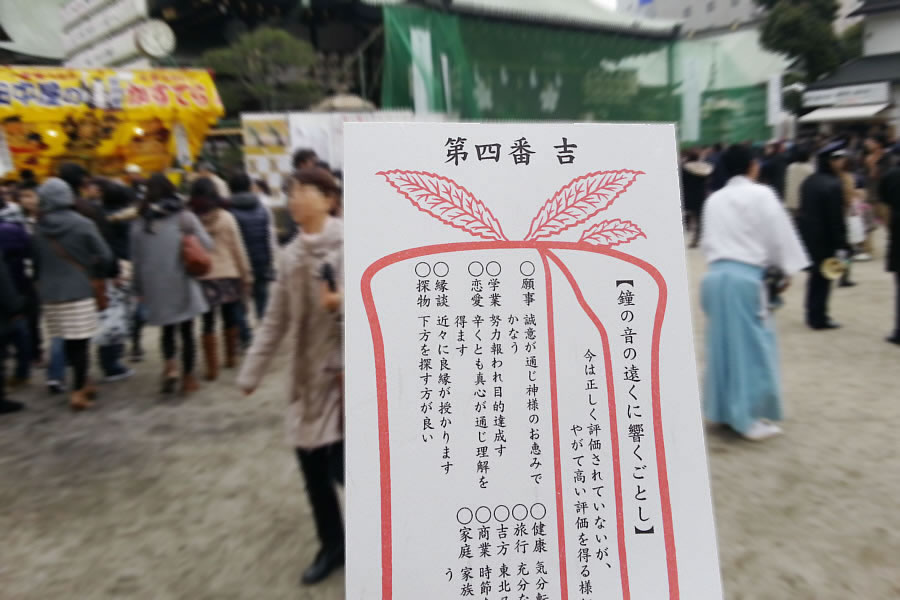 第四番 吉
【鐘の音の遠くに響くごとし】
今は正しく評価されていないが、
やがて高い評価を得る様
○願事 誠意が通じ神様のお恵みで
かなう
○学業 努力報われ目的達成す
○恋愛 辛くとも真心が通じ理解を
得ます
○縁談 近々に良縁が授かります
○探物 下方を探す方が良い
○健康 気分転
○旅行 充分な
○吉方 東北又
○商業 時節
○家庭 家族
う
かすてら